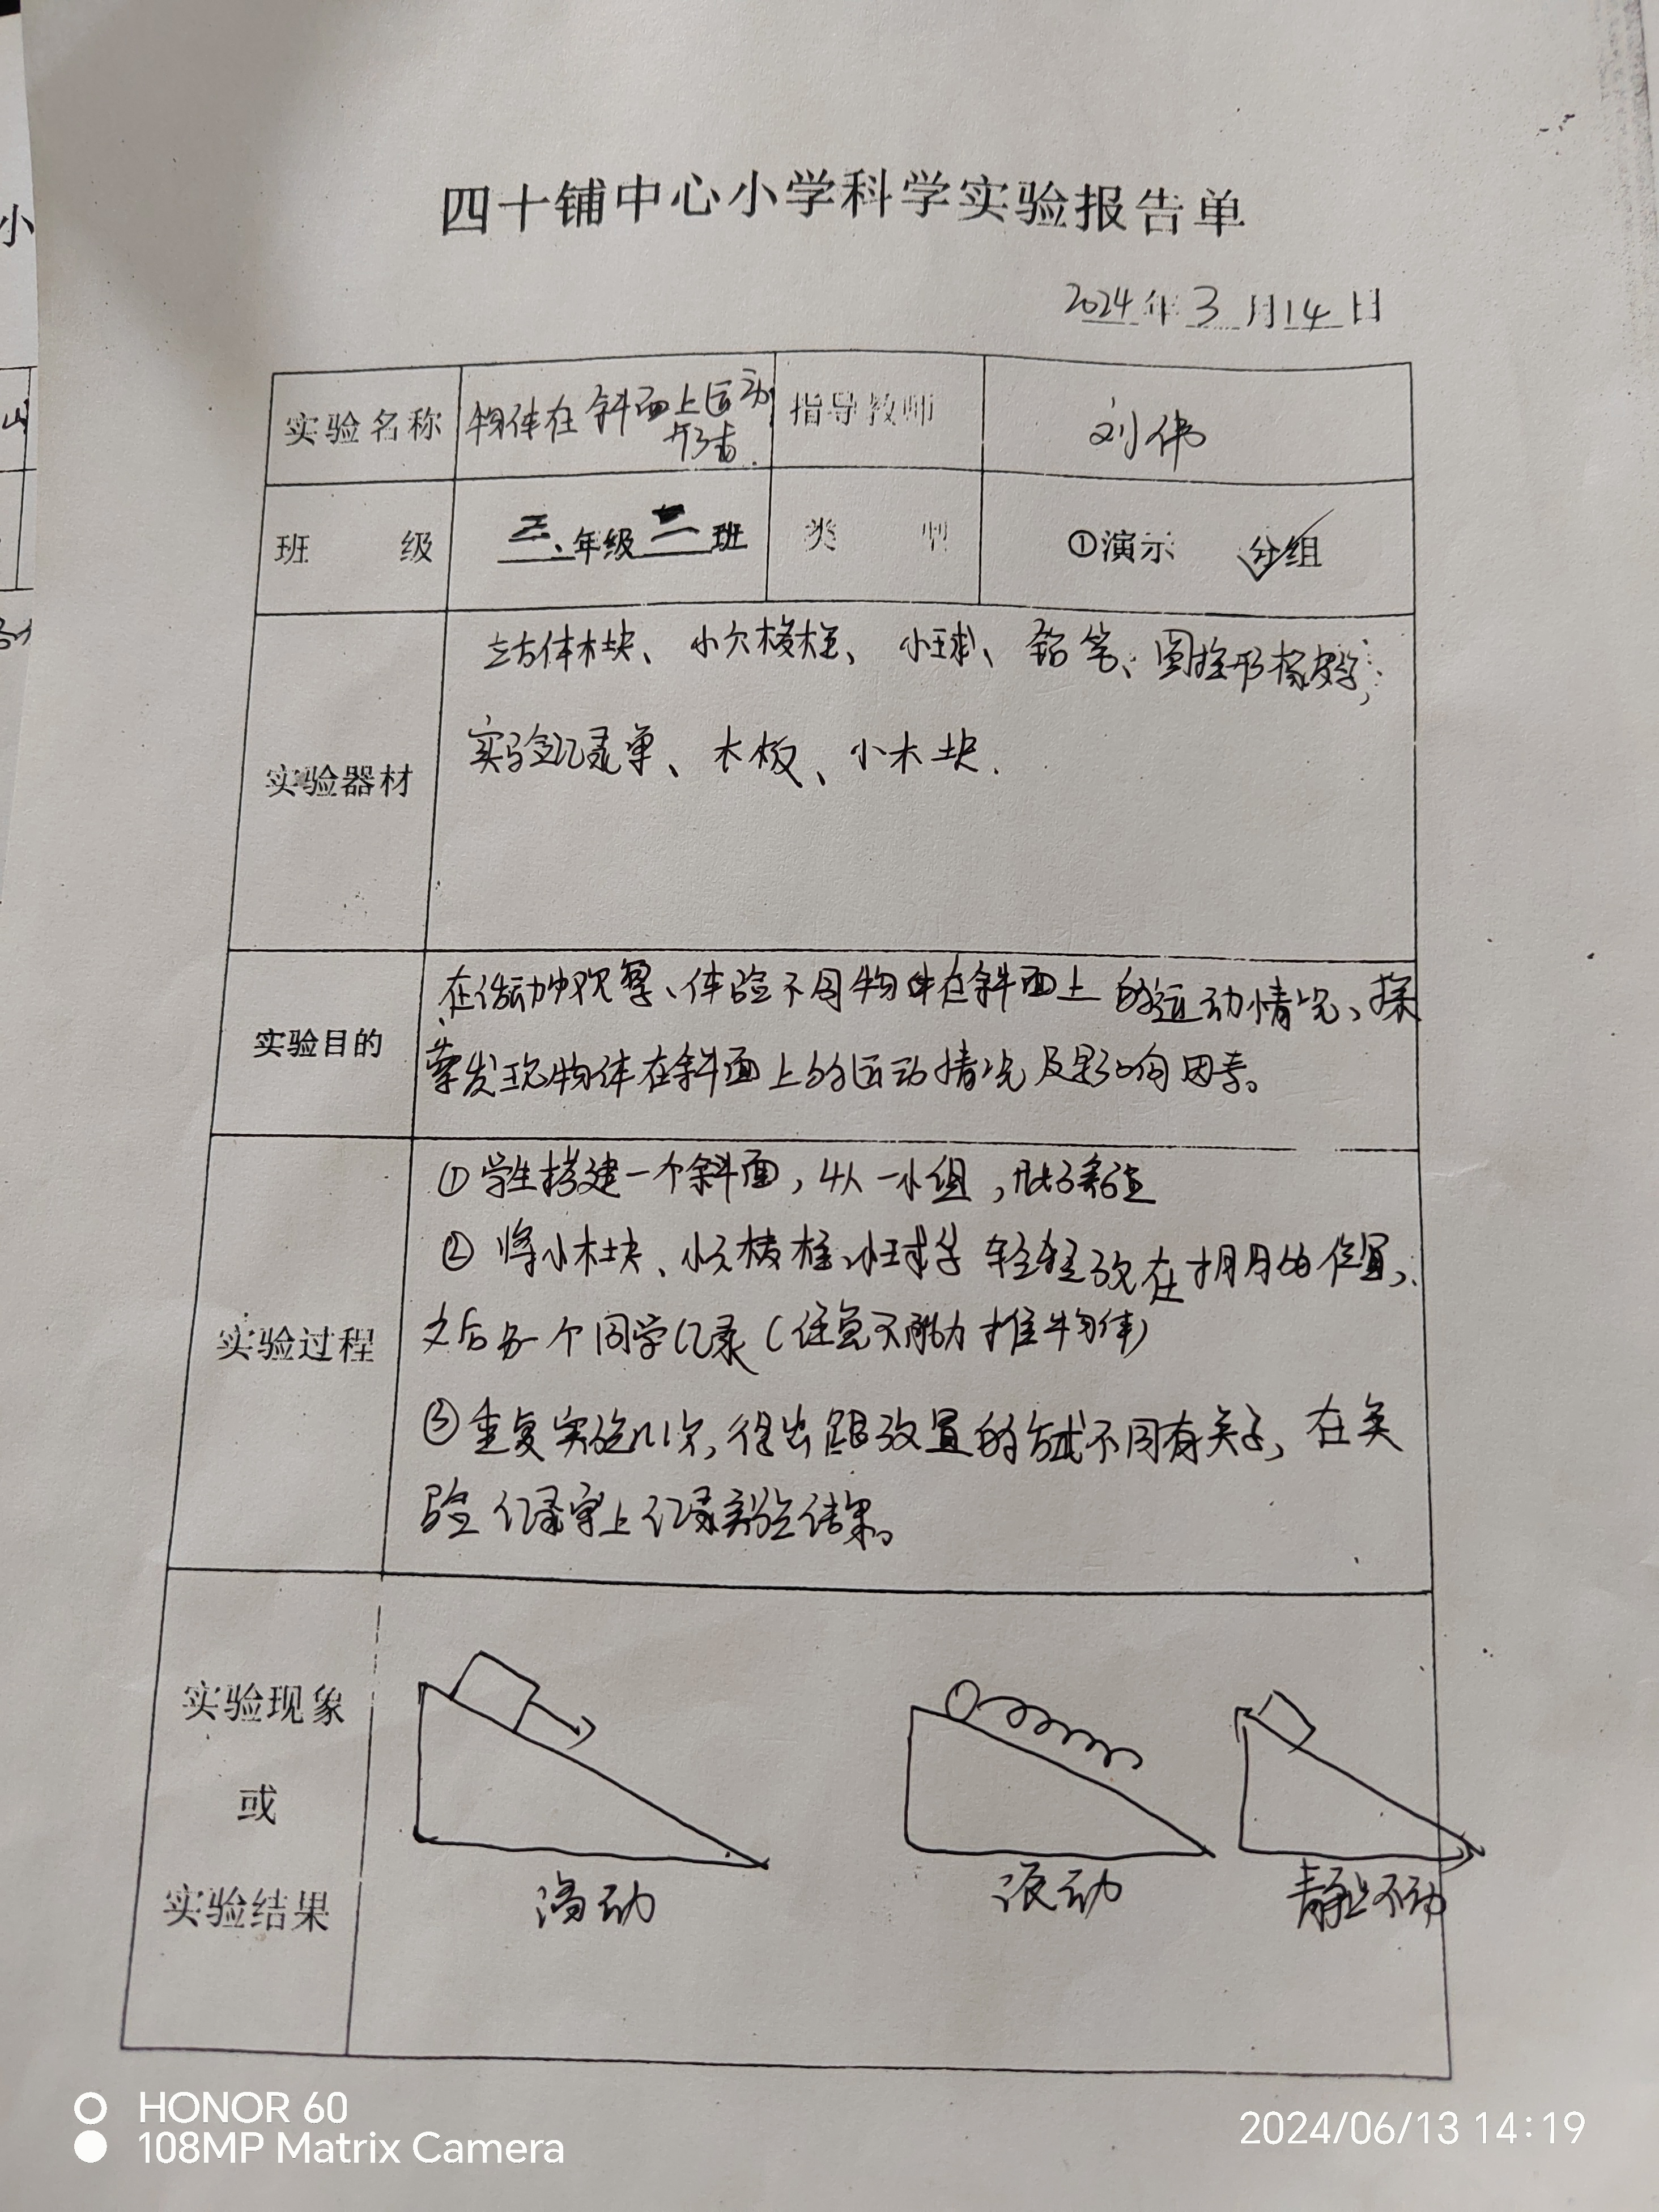 四十铺中心小学科学实验报告单
2024年3月14日
实验名称 物体在斜面上运动 指导教师 刘伟
班 级 三年级二班 类 型 ①演示 分组
立方体木块、小六棱柱、小球、铅笔、圆柱形橡皮
实验记录单、木板、小木块.
实验器材
在活动中观察、体验不同物体在斜面上的运动情况、探
实验目的
索发现物体在斜面上的运动情况及影响因素。
①学生搭建一个斜面,4人一小组,
②将小木块、小六棱柱、小球等轻轻放在相同的位置,
实验过程
之后另一个同学记录(任意不能力推物体)
③重复实验几次,得出跟放置的方式不同有关系,在实
验记录单上记录实验结果。
实验现象
或
实验结果
滑动 滚动 静止不动
小
HONOR 60
108MP Matrix Camera
2024/06/13 14:19